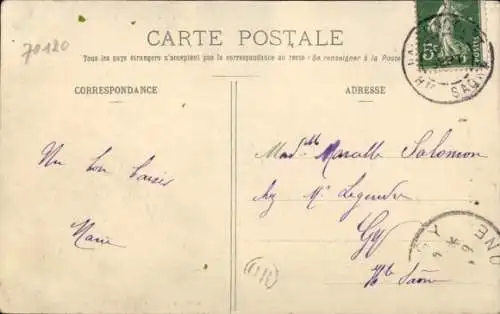 70180
CARTE POSTALE
Tous les pays étrangers n'acceptent pas la correspondance au recto - Se renseigner à la Poste
CORRESPONDANCE
ADRESSE
5c
Hte SAÔNE
Un bon baiser
Marie
Mad^lle Marcelle Salomon
chez Mr Legendre
Gy
Hte Saône
GY